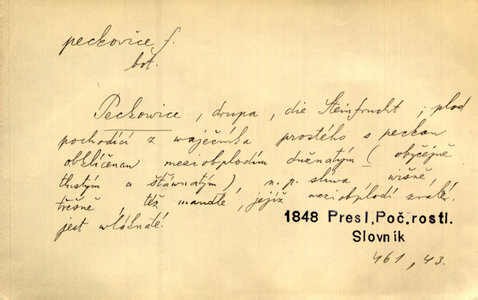 peckovice f.
bot.
Peckowice, drupa, die Steinfrucht; plod
pochodící z waječníka prostého s peckau
obklíčenau meziobplodím dužnatým (obyčejně
tlustým a šťawnatým), n. p. sliwa, wišně,
třešně, též mandle, jejíž meziobplodí
jest wláknaté.
1848 Presl, Poč. rostl.
Slovník
461, 43.